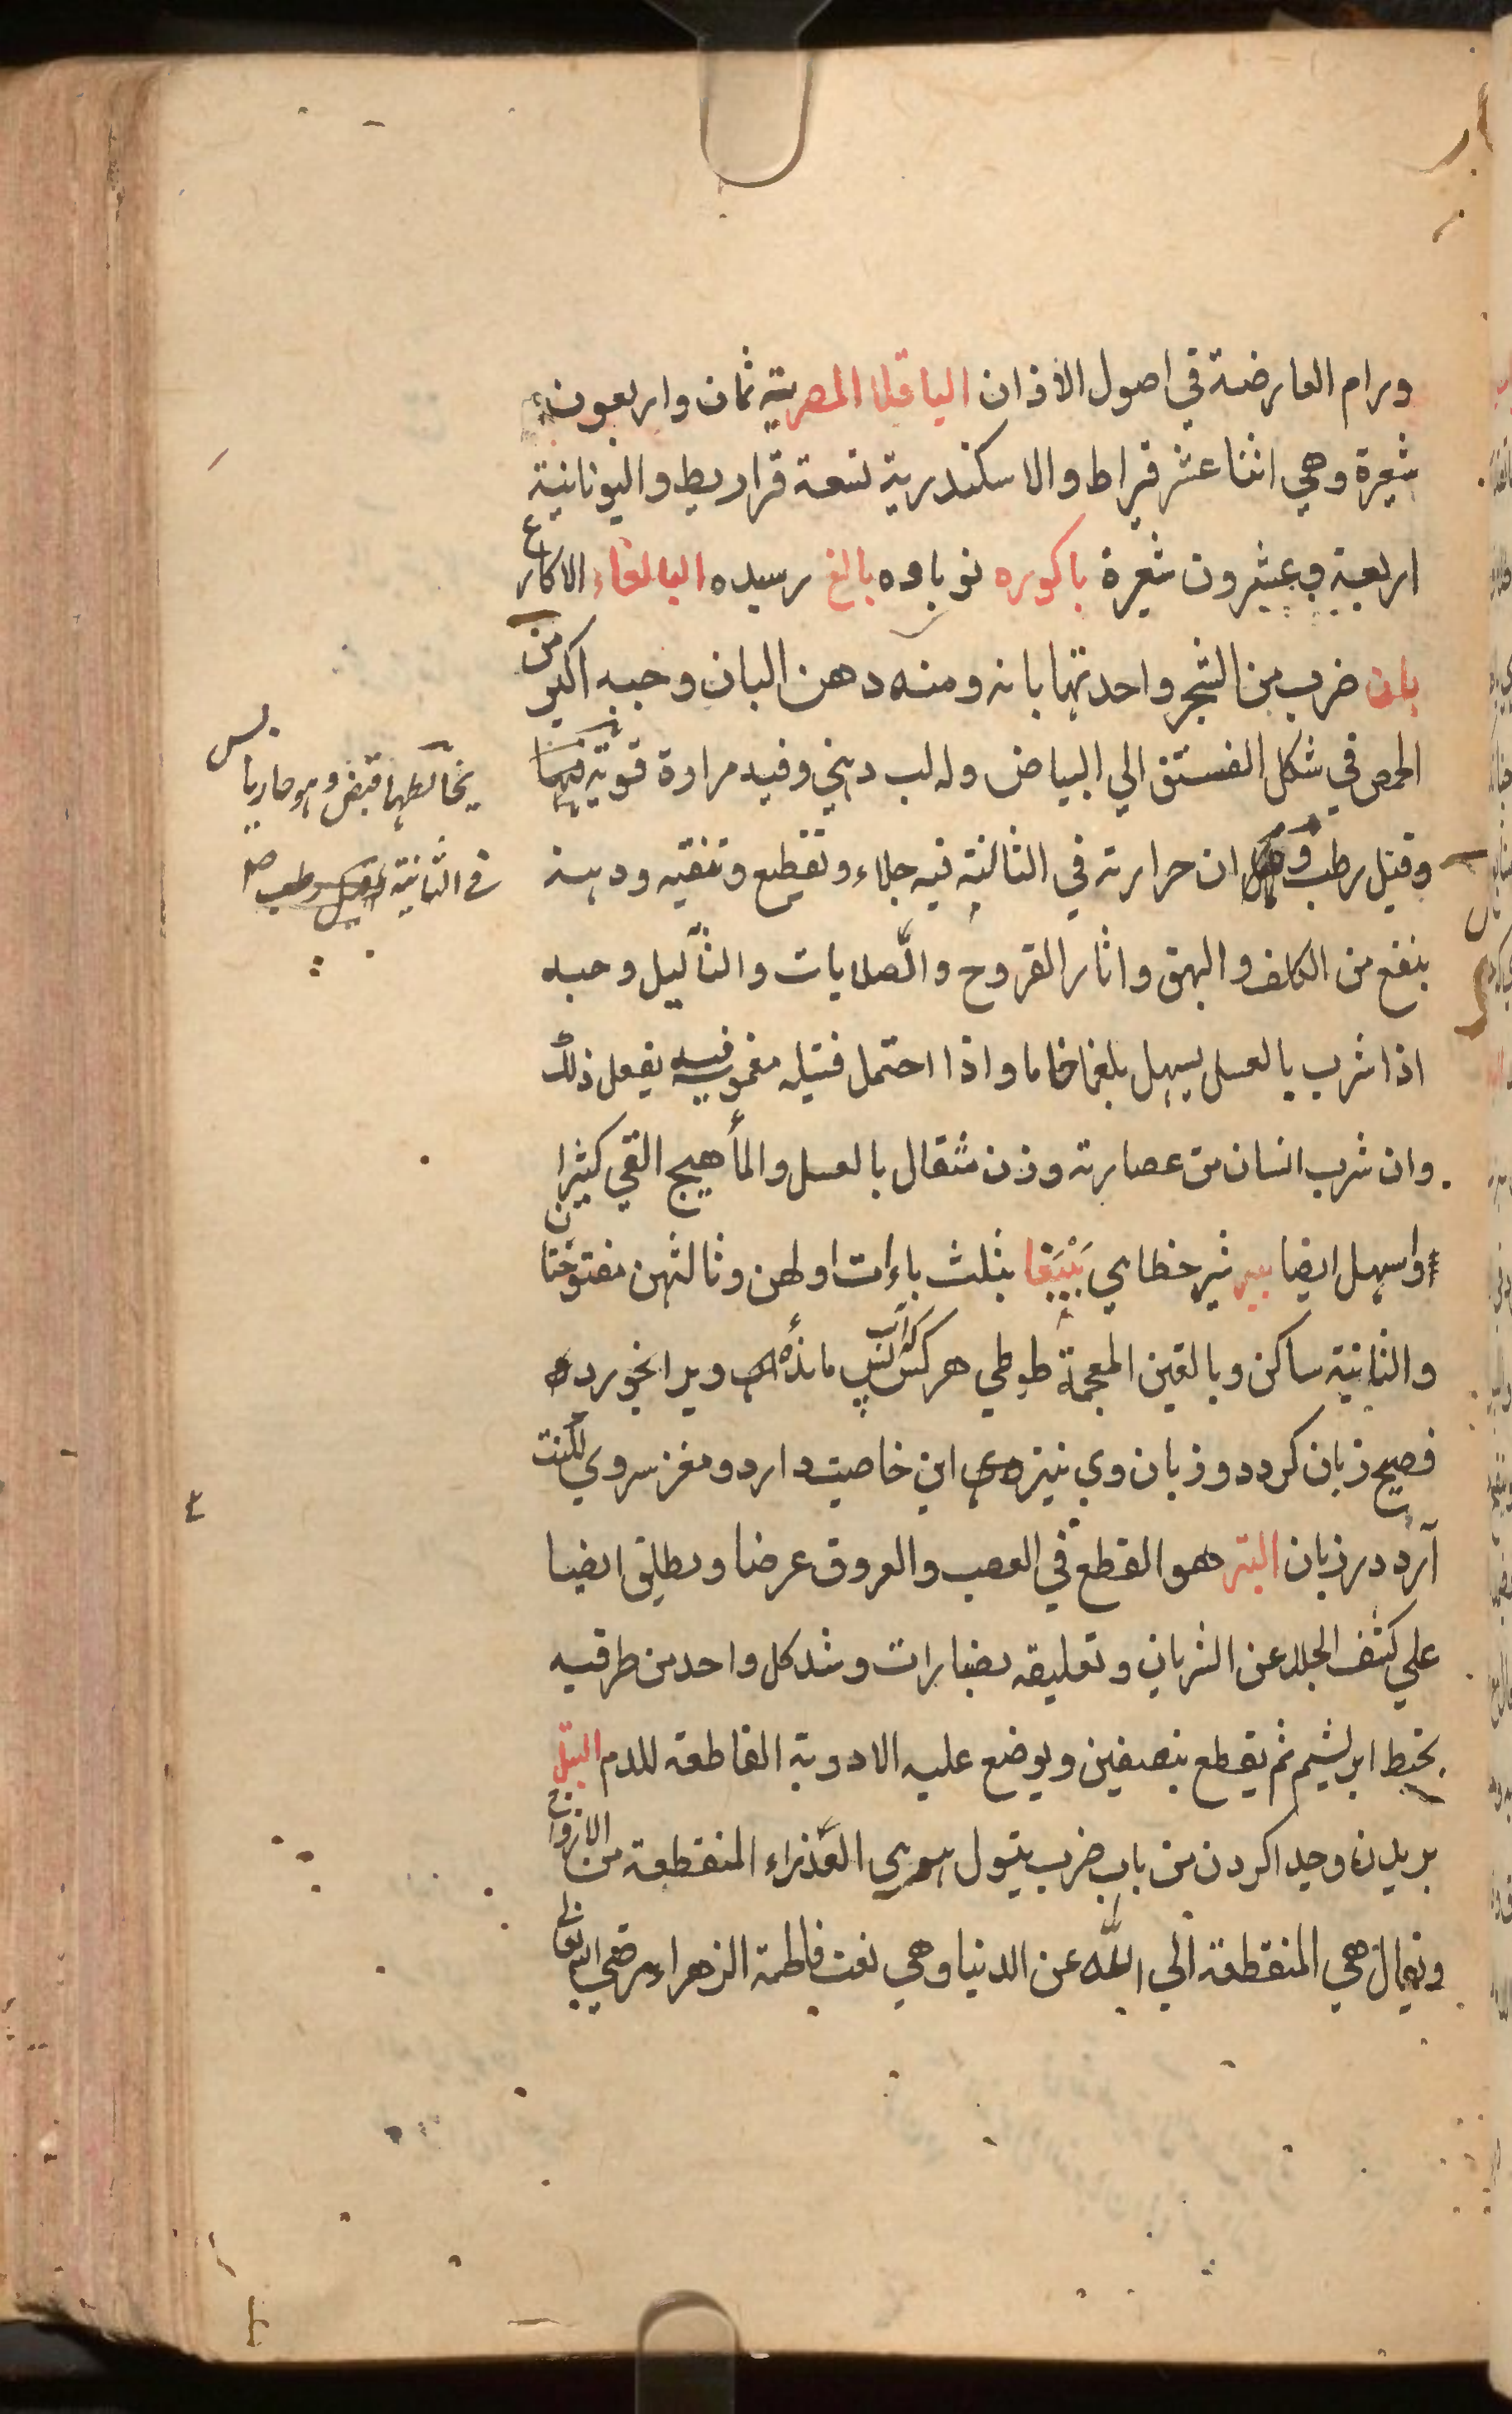 ورام العارضة في اصول الاذان الباقلا المصرية ثمان واربعون
شعيرة وهي اثنا عشر قيراط والاسكندرية تسعة قراريط واليونانية
اربعية وعشرون شعيرة باكوره نوباوه بالغ رسيده البالغاء الاكارع
بان ضرب من الشجر واحدتها بانه ومنه دهن البان وحبه اكبر من
الحمص في شكل الفستق الي البياض وله لب دهني وفيه مرارة قوية فيها
يخالطها قبض وهو حار يابس
في الثانية
وقيل رطب ان حرارته في الثالثة فيه جلاء وتقطيع وتنقيه ودهنه
ينفع من الكلف والبهق واثار القروح والصلابات والثآليل وحبه
اذا شرب بالعسل يسهل بلغما خاما واذا احتمل فتيله مغموسة فيه يفعل ذلك
وان شرب انسان من عصارته وزن مثقال بالعسل والمأ هيج القي كثيرا
واسهل ايضا ببر شير خطايي بَبْبَغا بثلث باءات اولهن وثالثهن مفتوحتان
والثانية ساكن وبالغين المعجمة طوطي هر كس كه ويرا بخورده
فصيح زبان كردد وزبان وي نيز همي اين خاصيت دارد ومغز سر وي لكنت
آرد در زبان البتر هو القطع في العصب والعروق عرضا ويطلق ايضا
علي كشف الجلد عن الشريان وتعليقه بصنارات وشد كل واحد من طرفيه
بخيط ابريشيم ثم يقطع بنصفين ويوضع عليه الادوية القاطعه للدم البتل
بريدن وجدا كردن من باب ضرب بتول هي العذراء المنقطعة من الازواج
ويقال هي المنقطعة الي الله عن الدنيا وهي نعت فاطمة الزهراء رضي الله تعالى